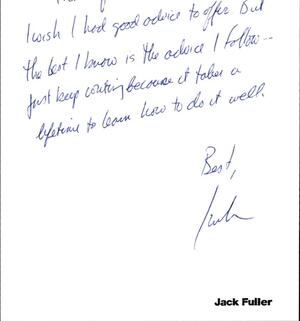 I wish I had good advice to offer. But
the best I know is the advice I follow--
Just keep writing because it takes a
lifetime to learn how to do it well.
Best,
Jack
Jack Fuller